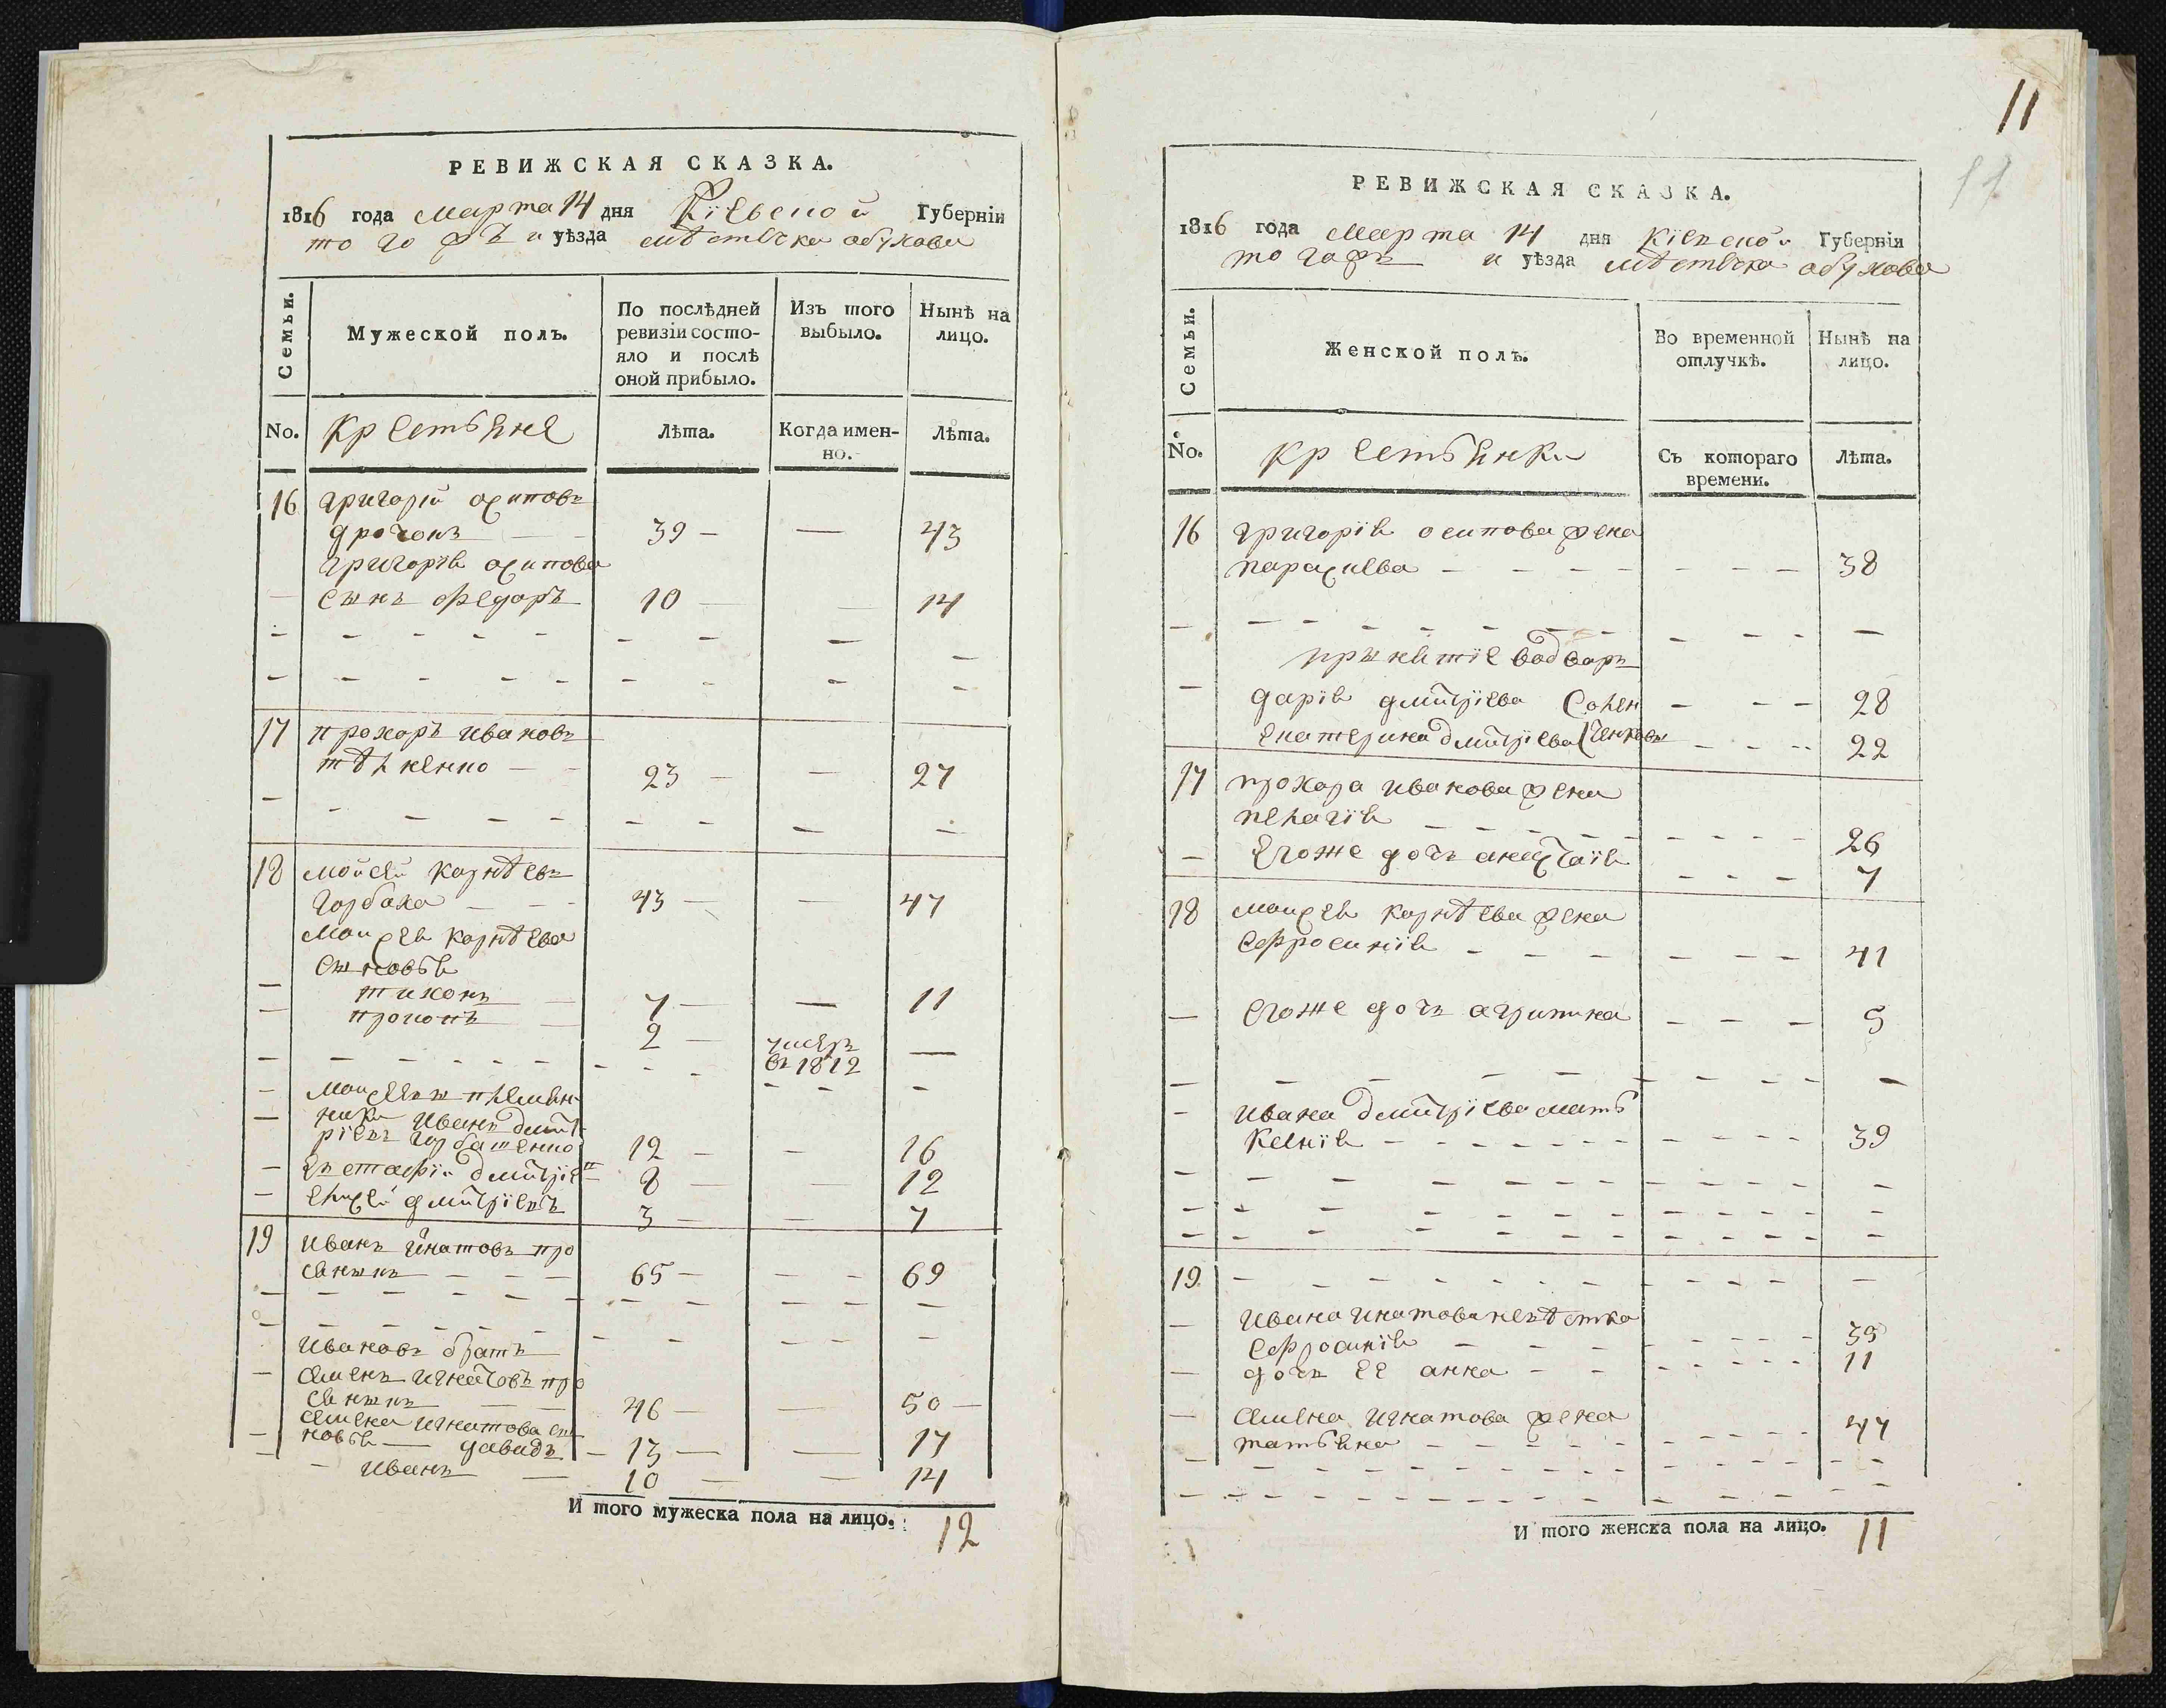 РЕВИЖСКАЯ СКАЗКА.
1816 года марта 14 дня Кіевской Губерніи
того жъ и уѣзда мѣстечка обухова
Семьи.
Мужеской полъ.
По послѣдней ревизіи состояло и послѣ оной прибыло.
Изъ того выбыло.
Нынѣ на лицо.
No.
Крестьяне
Лѣта.
Когда именно.
Лѣта.
16 григорій осиповъ
39 — — 43
григорія осипова
сынъ федоръ 10 — — 14
17 прохоръ ивановъ
23 — — 27
18 мойсей карнѣевъ
горбаха — 43 — — 47
моисея карнѣева
сыновья
тихонъ 7 — — 11
прокопъ 2 — умеръ въ 1812 —
моисеевы племян-
ники иванъ дмит-
ріевъ горбатенко 12 — — 16
евстафій дмитріев 8 — — 12
елисей дмитріевъ 3 — — 7
19 иванъ игнатовъ про
сяныкъ — 65 — — 69
ивановъ братъ
семенъ игнатовъ про
сяныкъ 46 — — 50 —
семена игнатова сы
новья — давидъ — 13 — — 17
иванъ — 10 — — 14
И того мужеска пола на лицо. 12
11
11
РЕВИЖСКАЯ СКАЗКА.
1816 года марта 14 дня Кіевской Губернія
того жъ и уѣзда мѣстечка обухова
Семьи.
Женской полъ.
Во временной отлучкѣ.
Нынѣ на лицо.
No.
Крестьянки
Съ котораго времени.
Лѣта.
16 григорія осипова жена
параскева — 38
принятіе водворъ
дарія дмитріева 28
екатерина дмитріева 22
17 прохора иванова жена
пелагія — 26
егоже дочь анастасія 7
18 моисея карнѣева жена
ефросинія — 41
— егоже дочь агрипина — 5
— ивана дмитріева мать
ксенія — 39
19
— ивана игнатова невѣстка
ефросинія — 39
— дочь ее анна — 11
— семена игнатова жена
татьяна — 47
И того женска пола на лицо. 11